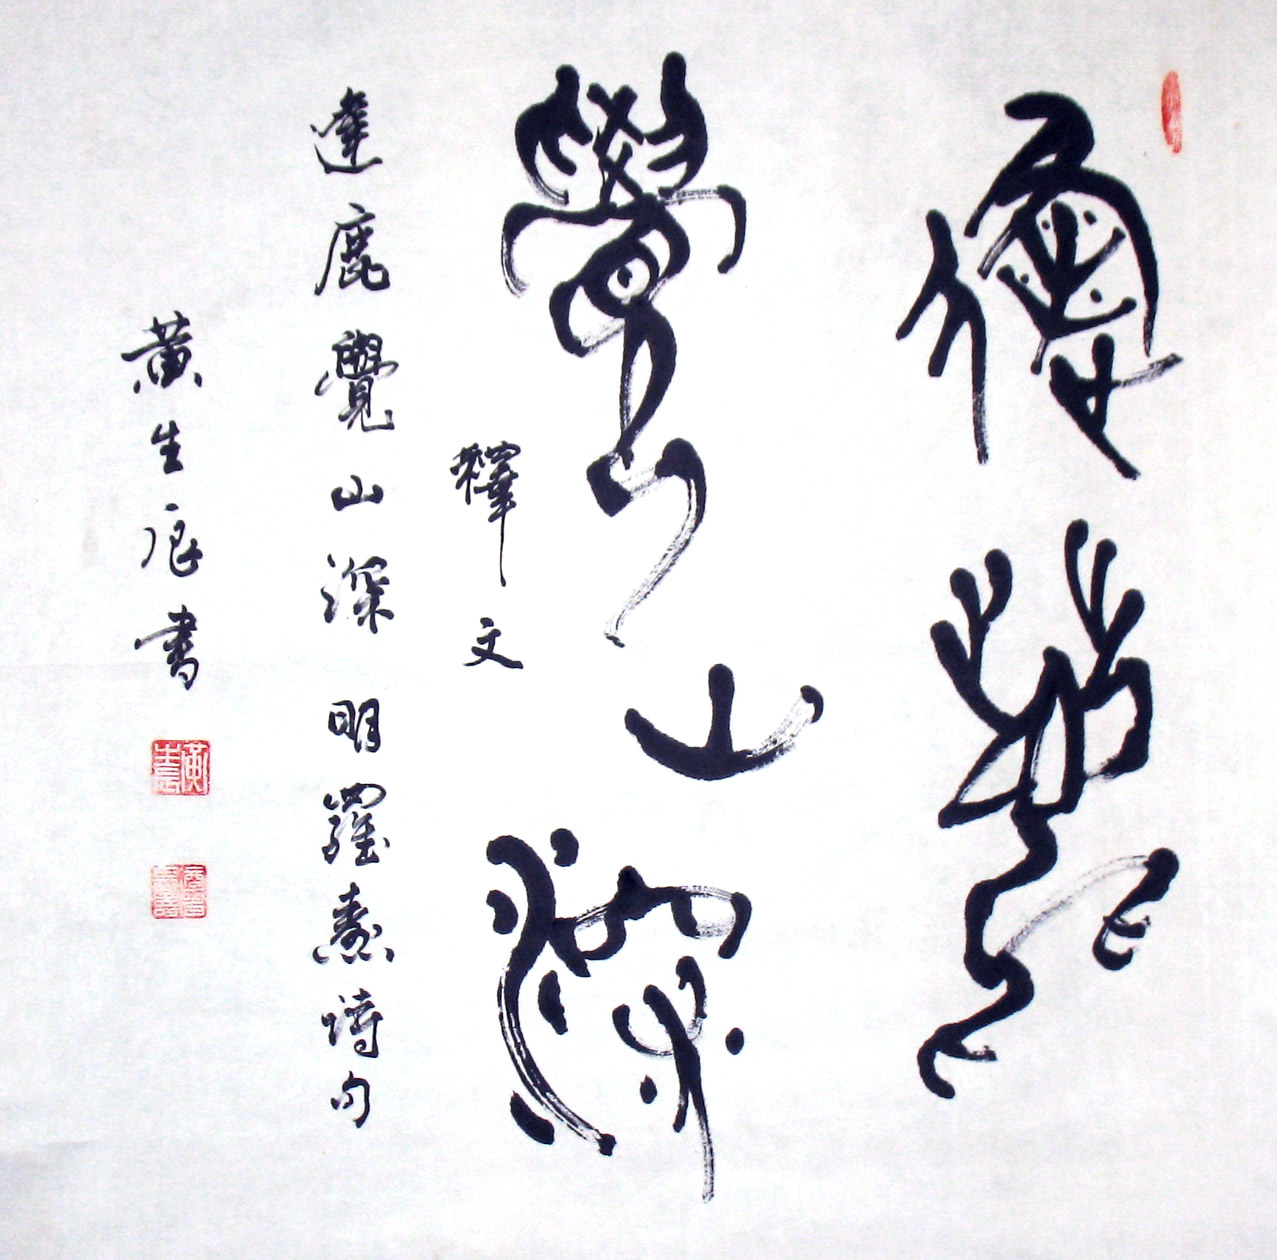 逢鹿
覺山深
釋文
逢鹿覺山深 明羅詩句
黃生書